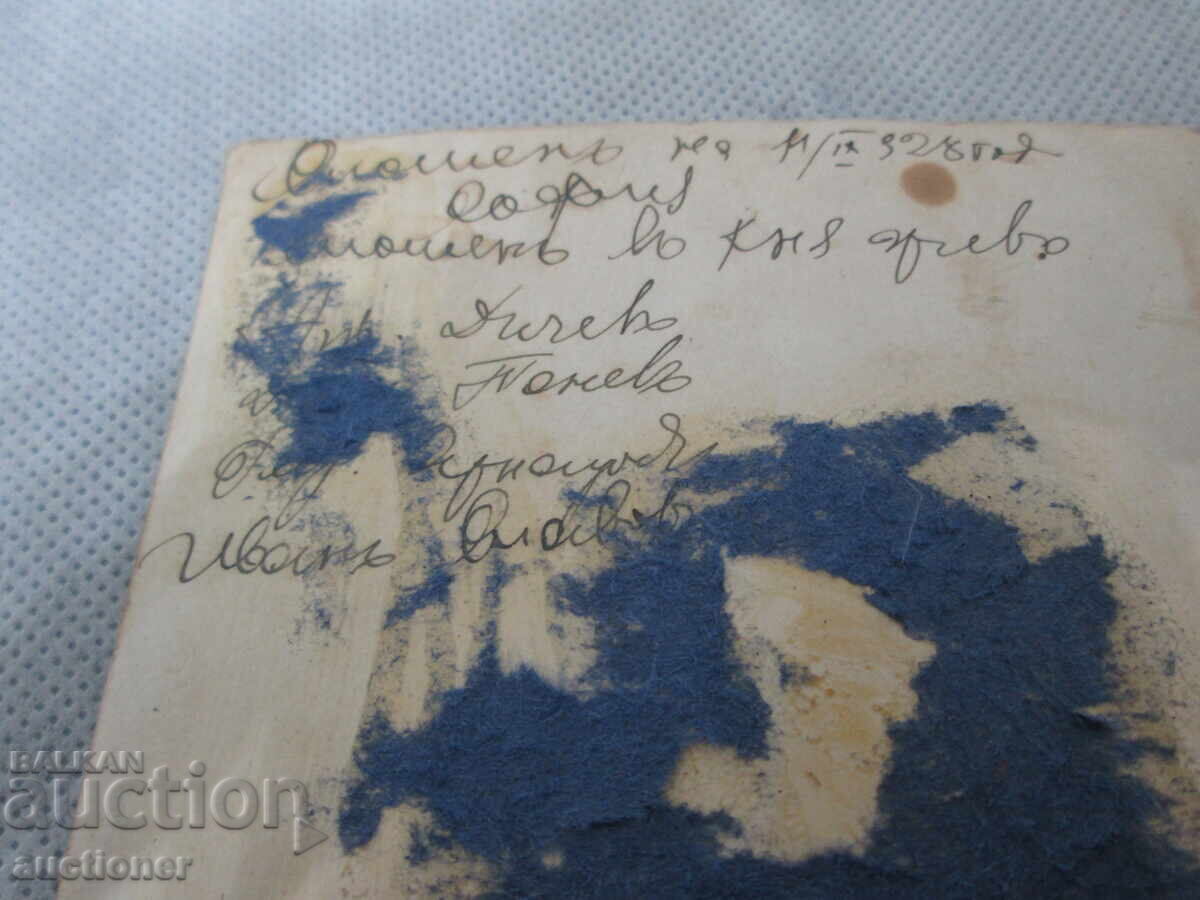 Спомень на 11/IX 928 год
София
Спомень въ Княжево
Дичевъ
Поневъ
Иванъ Славов
BALKAN
auction
auctioner